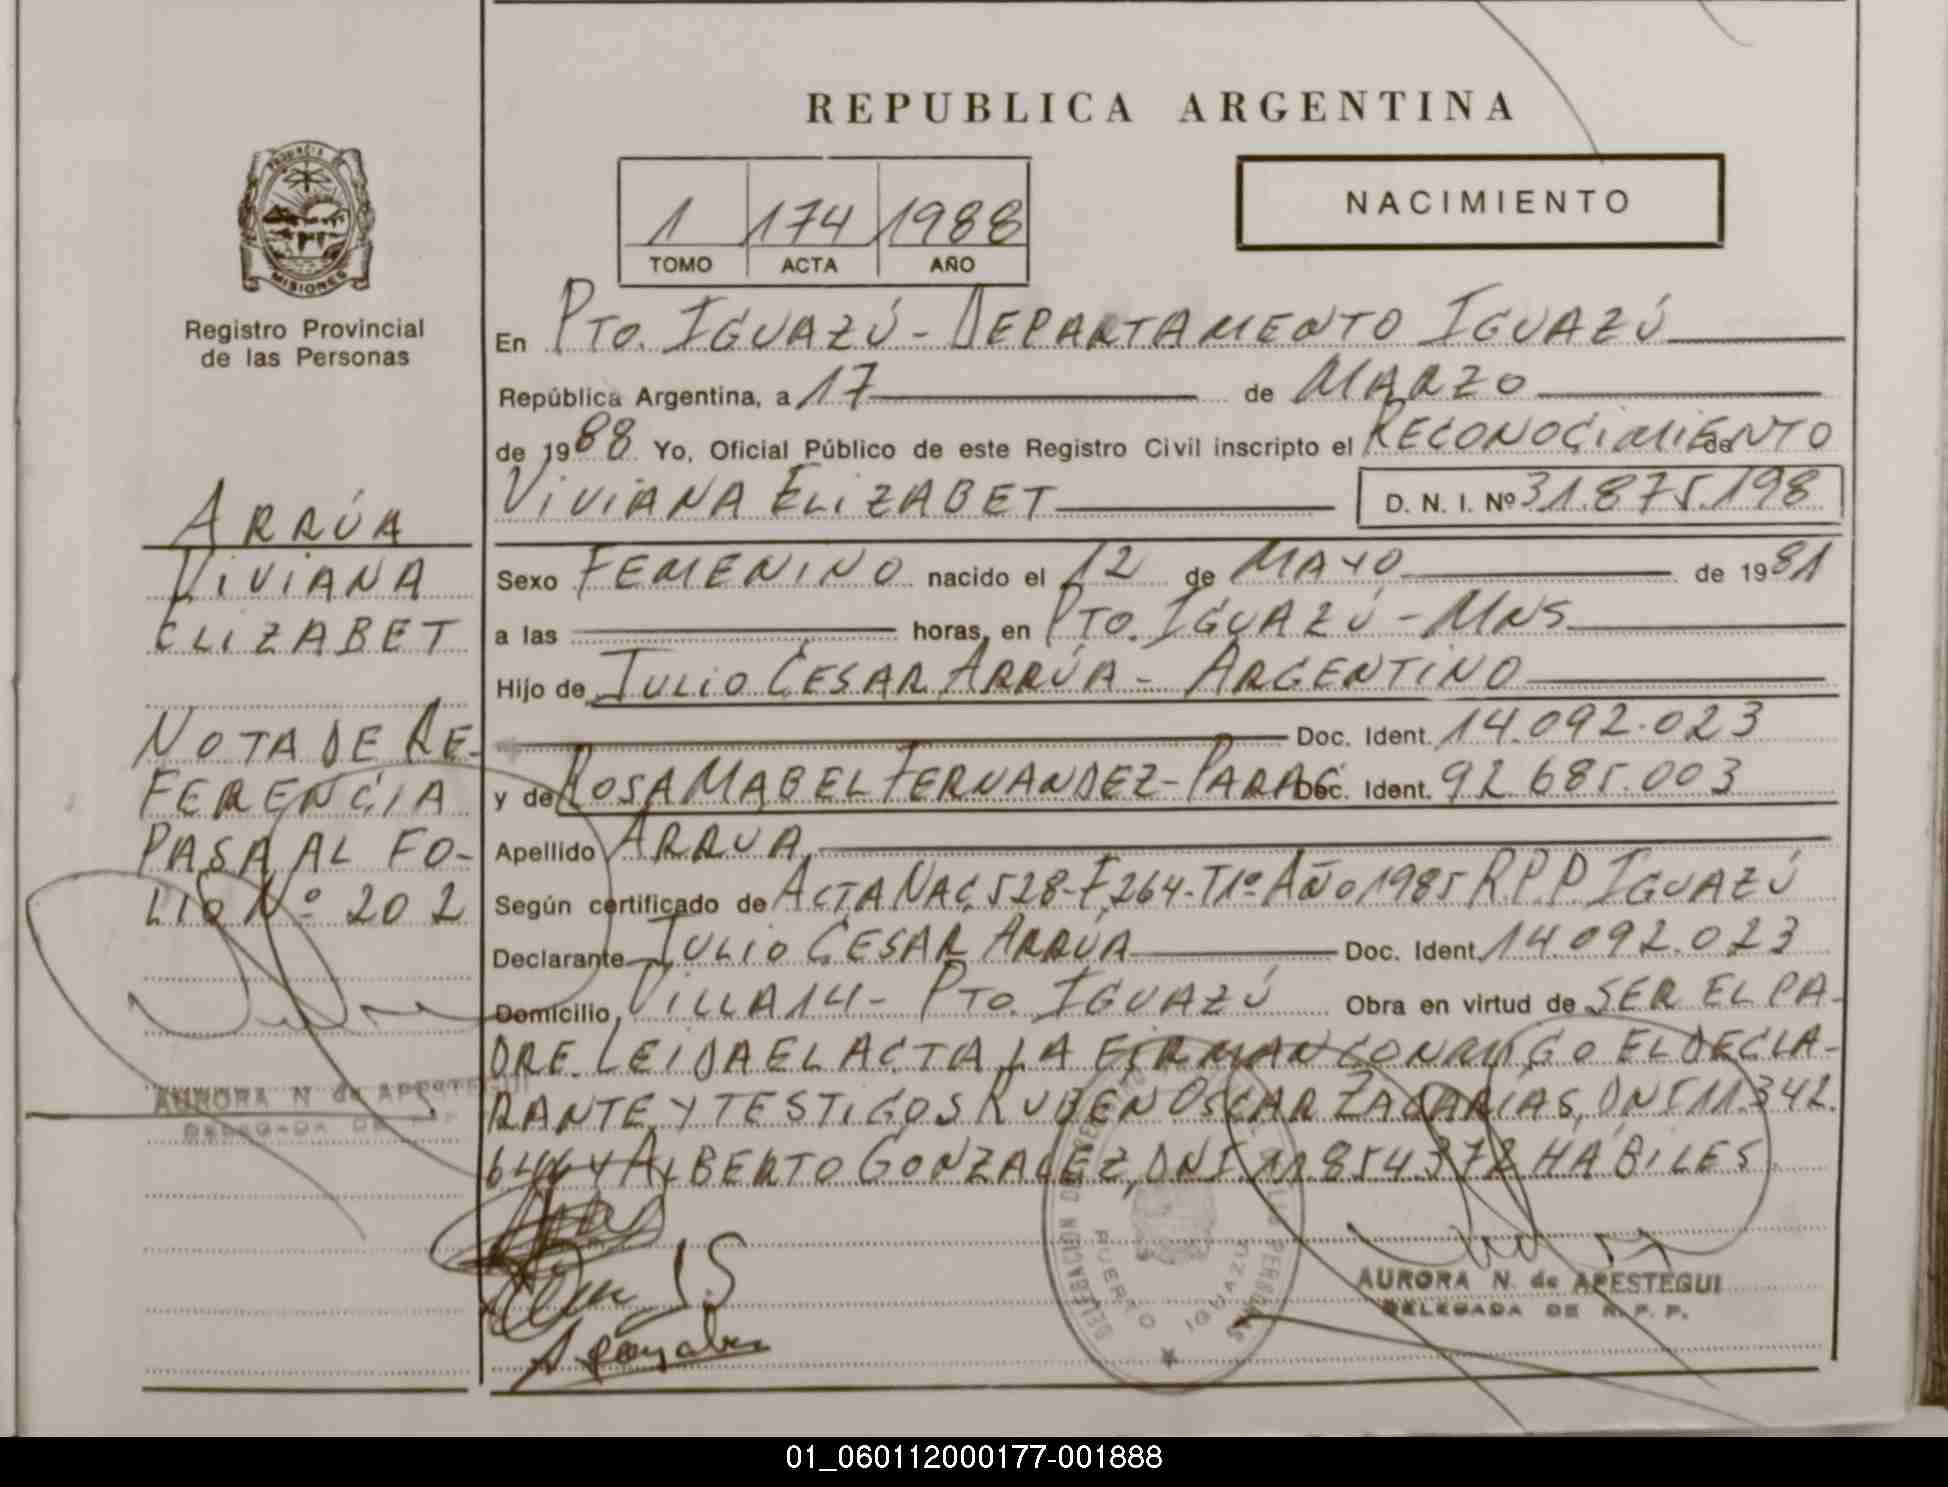 REPUBLICA ARGENTINA
PROVINCIA DE
MISIONES
Registro Provincial
de las Personas
1 174 1988
TOMO ACTA AÑO
NACIMIENTO
En PTO. IGUAZÚ - DEPARTAMENTO IGUAZÚ
República Argentina, a 17 de MARZO
de 1988 Yo, Oficial Público de este Registro Civil inscripto el RECONOCIMIENTO de
VIVIANA ELIZABET D. N. I. Nº 31.875.198
Sexo FEMENINO nacido el 12 de MAYO de 1981
a las horas, en PTO. IGUAZÚ - MNS
Hijo de JULIO CESAR ARRÚA - ARGENTINO
Doc. Ident. 14.092.023
y de ROSA MABEL FERNANDEZ - PARAG Doc. Ident. 92.685.003
Apellido ARRUA
Según certificado de ACTA NAC. 528-F.264-T1º AÑO 1985 R.P.P. IGUAZÚ
Declarante JULIO CESAR ARRÚA Doc. Ident. 14.092.023
Domicilio VILLA 14 - PTO. IGUAZÚ Obra en virtud de SER EL PA-
DRE. LEIDA EL ACTA, LA FIRMAN CONMIGO EL DECLA-
RANTE Y TESTIGOS RUBEN OSCAR ZACARÍAS, DNI 11.342.
Y ALBERTO GONZALEZ, DNI 11.854.372 HÁBILES
ARRÚA
VIVIANA
ELIZABET
NOTA DE RE-
FERENCIA
PASA AL FO-
LIO Nº 202
AURORA N. de APESTEGUI
DELEGADA DE R. P. P.
A. Gonzalez
PUERTO IGUAZU
AURORA N. de APESTEGUI
DELEGADA DE R. P. P.
01_060112000177-001888